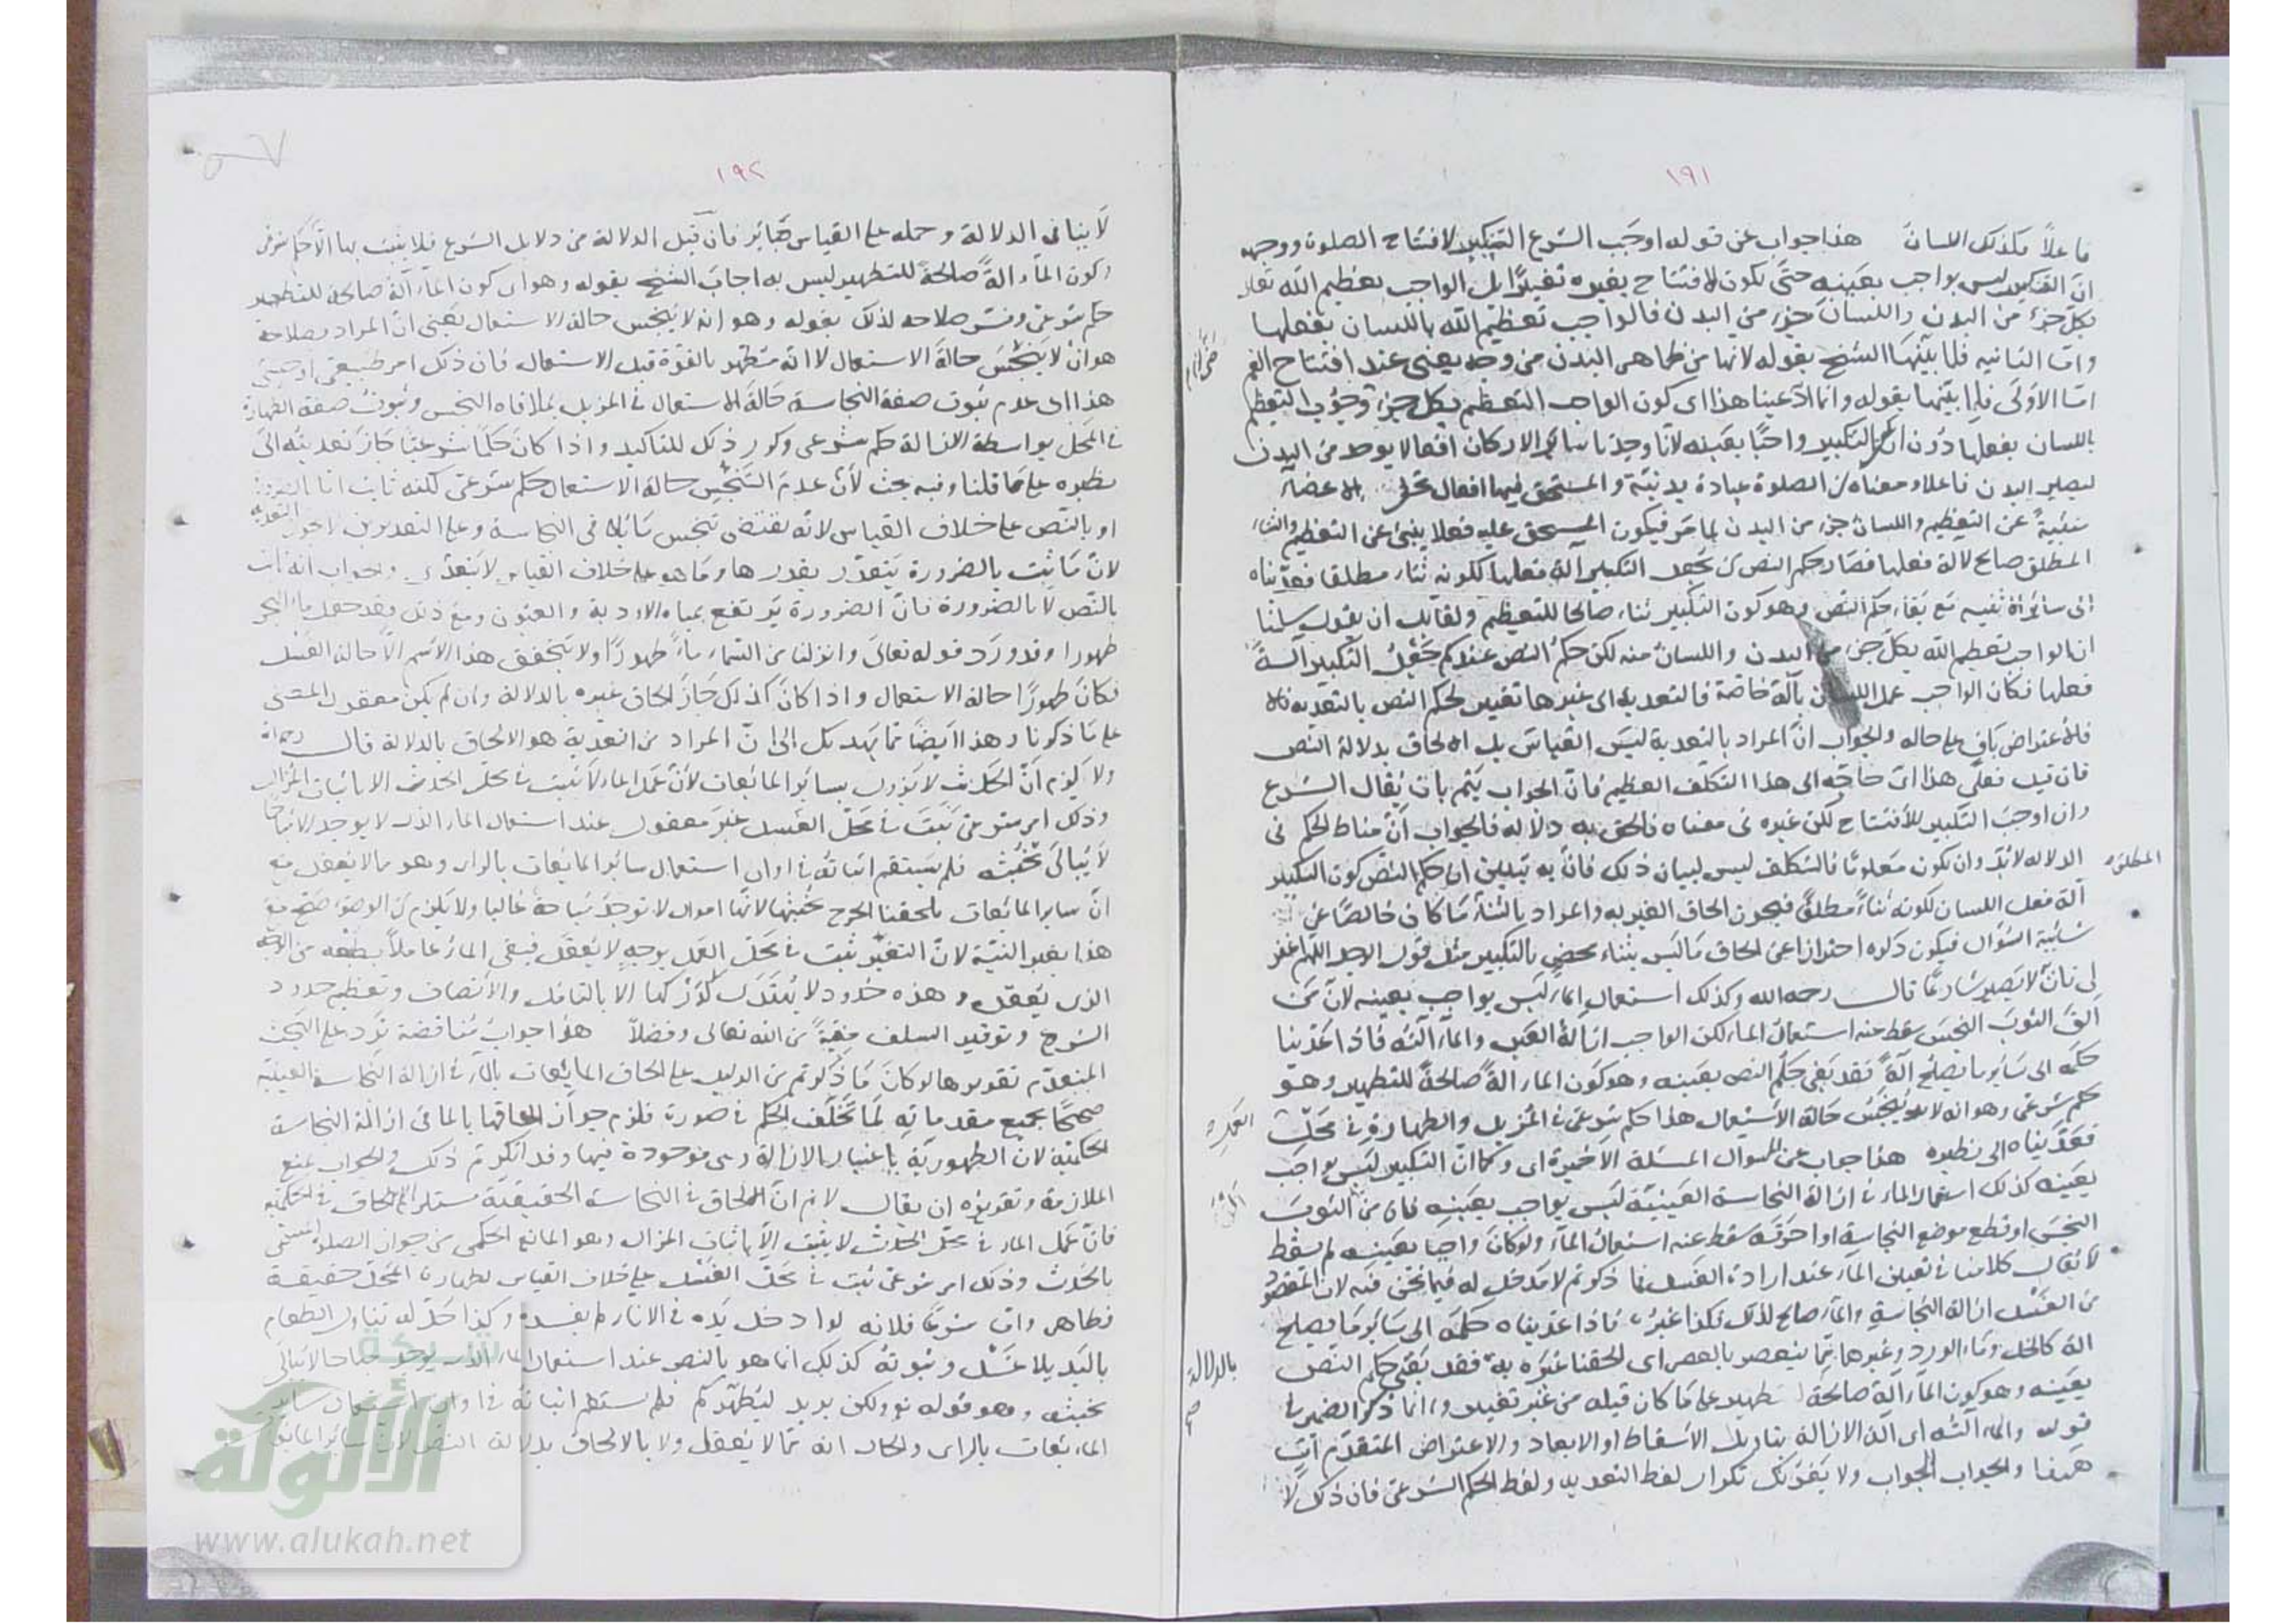 ١٩١
فاعلاً فكذلك اللسان هذا جواب عن قوله اوجب الشرع التكبير لافتتاح الصلوة ووجهه
انّ التكبير ليس بواجب بعينه حتّى يكون الافتتاح بغيره تغييرًا بل الواجب تعظيم الله تعالى
بكل جزء من البدن واللسان جزء من البدن فالواجب تعظيم الله باللسان بفعلها
وامّا الثانيه فلما بيّنها الشيخ بقوله لانها من ظاهر البدن من وجه يعنى عند افتتاح الفم
امّا الاولى فلما بيّنها بقوله وانما ادّعينا هذا اى كون الواجب التعظيم بكل جزء وجوب التعظيم
باللسان بفعلها دون التكبير واجبًا بعينه لأنا وجدنا سائر الاركان افعالا يوجد من البدن
ليصير البدن فاعلا ومعناه ان الصلوة عبادة بدنيّة والمستحق فيها افعال الاعضاء
منبئة عن التعظيم واللسان جزء من البدن لما مر فيكون المستحق عليه فعلا ينبئ عن التعظيم والثناء
المطلق صالح لآلة فعلها فصار حكم النص ان يجعل التكبير آلة فعلها لكونه ثناء مطلقا فعدّيناه
الى سائر الاثنيه مع بقاء حكم النص وهو كون التكبير ثناء صالحا للتعظيم ولقائل ان يقول سلمنا
ان الواجب تعظيم الله بكل جزء من البدن واللسان منه لكن حكم النص عندكم جعل التكبير آلة
فعلها فكان الواجب عمل اللسان بآلة خاصّة فالتعدية الى غيرها تغيير لحكم النص بالتعدية
فالاعتراض باق على حاله والجواب انّ المراد بالتعدية ليس القياس بل الالحاق بدلالة النص
فان قيل فعلى هذا اىّ حاجة الى هذا التكلّف العظيم فانّ الجواب يتم بان يقال الشرع
وان اوجب التكبير للافتتاح لكن غيره فى معناه فالحق به دلالة فالجواب انّ مناط الحكم فى
الدلالة لابدّ وان يكون معلومًا فالتكلف ليس لبيان ذلك فانّ به تبيين ان حكم النص كون التكبير
آلة فعل اللسان لكونه ثناءً مطلقًا فيجوز الحاق الغير به والمراد بالثناء ما كان خالصًا عن
شائبة السؤال فيكون ذكره احترازا عن الحاق ما ليس بثناء محض بالتكبير مثل قول الرجل اللهم اغفر
لى فانه لا يصير شارعًا قال رحمه الله وكذلك استعمال الماء ليس بواجب بعينه لانّ من
القى الثوب النجس سقط عنه استعمال الماء لكن الواجب ازالة العين والماء آلته فاذا عدّينا
حكمه الى سائر ما يصلح آلة فقد بقى حكم النص بعينه وهو كون الماء آلة صالحةً للتطهير وهو
حكم شرعى وهو انه لا ينجس حالة الاستعمال هذا حكم شرعى فى المزيل والطهارة فى محلّ
فعدّيناه الى نظيره هذا جواب عن السوال المسئلة الاخيرة اى وكما انّ التكبير ليس بواجب
بعينه كذلك استعمال الماء فى ازالة النجاسة العينيّة ليس بواجب بعينه فان من القى الثوب
النجس او قطع موضع النجاسة او احرقه سقط عنه استعمال الماء ولو كان واجبا بعينه لم يسقط
لا يقال كلامنا فى تعيين الماء عند ارادة الغسل فما ذكرتم لا مدخل له فيما نحن فيه لان المقصود
من الغسل ازالة النجاسة والماء صالح لذلك فكذا غيره فاذا عدّيناه حكمه الى سائر ما يصلح
آلة كالخل وماء الورد وغيرها ممّا ينعصر بالعصر اى الحقنا غيره به فقد بقى حكم النص
بعينه وهو كون الماء آلة صالحة للتطهير على ما كان قبله من غير تغيير وانما ذكّر الضمير فى
قوله والماء آلته اى آلة الازالة بتاويل الاسقاط او الابعاد والاعتراض المتقدّم آتٍ
ههنا والجواب الجواب ولا يغرّنّك تكرار لفظ التعدية ولفظ الحكم الشرعى فان ذلك لا
المطلق
بالدلالة
صح
١٩٢
لا ينافى الدلالة وحمله على القياس جائز فان قيل الدلالة من دلايل الشرع فلا يثبت بها الا حكم شرعى
وكون الماء آلةً صالحةً للتطهير ليس به اجاب الشيخ بقوله وهو اى كون الماء آلة صالحة للتطهير
حكم شرعى وفسّر صلاحه لذلك بقوله وهو انه لا ينجس حالة الاستعمال يعنى انّ المراد بصلاحه
هو ان لا ينجس حالة الاستعمال لا انّه مطهر بالقوّة قبل الاستعمال فان ذلك امر طبيعى او حسّى
هذا اى عدم ثبوت صفة النجاسة حالة الاستعمال فى المزيل بملاقاه النجس وثبوت صفة الطهارة
فى المحل بواسطة الازالة حكم شرعى وكرر ذلك للتاكيد واذا كان حكمًا شرعيًّا جاز تعديته الى
نظيره على ما قلنا وفيه بحث لأن عدم التنجس حالة الاستعمال حكم شرعى لكنه ثابت امّا بالضرورة
او بالنّص على خلاف القياس لانّه يقتضى تنجس ما يلاقى النجاسة وعلى التقديرين لا يجوز التعدية
لانّ ما يثبت بالضرورة يتقدّر بقدرها وما هو على خلاف القياس لا يتعدّى والجواب انه ثابت
بالنّص لا بالضرورة فانّ الضرورة ترتفع بمياه الاودية والعيون ومع ذلك فقد جعل ماء البحر
طهورا وقد ورد قوله تعالى وانزلنا من السماء ماءً طهورًا ولا يتحقق هذا الاسم الّا حالة الغسل
فكان طهورًا حالة الاستعمال واذا كان كذلك جاز الحاق غيره بالدلالة وان لم يكن معقول المعنى
على ما ذكرنا وهذا ايضًا ممّا يهديك الى انّ المراد من التعدية هو الالحاق بالدلالة قال رحمه الله
ولا يلزم انّ الحدث لا يزول بسائر المائعات لأنّ عمل الماء لا يثبت فى محل الحدث الا باثبات المزال
وذلك امر شرعى ثبت فى محلّ الغسل غير معقول عند استعمال الماء الذى لا يوجد الا مباحًا
لا يبالى بخبثه فلم يستقم اثباته فى اوان استعمال سائر المائعات بالراى وهو مما لا يعقل مع
انّ سائر المائعات يلحقنا الحرج بخبثها لانّها اموال لا توجد مباحة غالبا ولا يلزم ان الوضوء صحّ مع
هذا بغير النيّة لانّ التغيّر ثبت فى محلّ العمل بوجهٍ لا يعقل فبقى الماء عاملاً بطبعه من الوجه
الذى يعقل وهذه حدود لا يُهتدى لدركها الا بالتامّل والأنصاف وتعظيم حدود
الشرع وتوقير السلف منّةً من الله تعالى وفضلاً هذا جواب مناقضة ترد على البحث
المتقدّم تقديرها لو كان ما ذكرتم من الدليل على الحاق المايعات بالماء فى ازالة النجاسة العينيّة
صحيحًا بجميع مقدماته لَمَا تخلّف الحكم فى صورة فلزم جواز الحاقها بالماء فى ازالة النجاسة
الحكميّة لان الطهوريّة باعتبار الازالة وهى موجودة فيها وقد انكرتم ذلك والجواب بمنع
الملازمة وتقريره ان يقال لا نم انّ الالحاق فى النجاسة الحقيقيّة مستلزم للالحاق فى الحكميّه
فانّ عمل الماء فى محلّ الحدث لا يثبت الّا باثبات المزال وهو المانع الحكمى من جواز الصلوة المسمّى
بالحدث وذلك امر شرعى ثبت فى محلّ الغسل على خلاف القياس لطهارة المحلّ حقيقة
فظاهر وامّا شرعًا فلانه لو ادخل يده فى الاناء لم يفسده وكذا حلّ له تناول الطعام
باليد بلا غسل وثبوته كذلك انما هو بالنص عند استعمال الماء الذى يوجد مباحا لا يبالى
بخبثه وهو قوله تع ولكن يريد ليطهّركم فلم يستقم اثباته فى اوان استعمال ساير
المائعات بالراى والحال انه ممّا لا يعقل ولا بالالحاق بدلالة النص لان سائر المائعات
شبكة
الألوكة
www.alukah.net